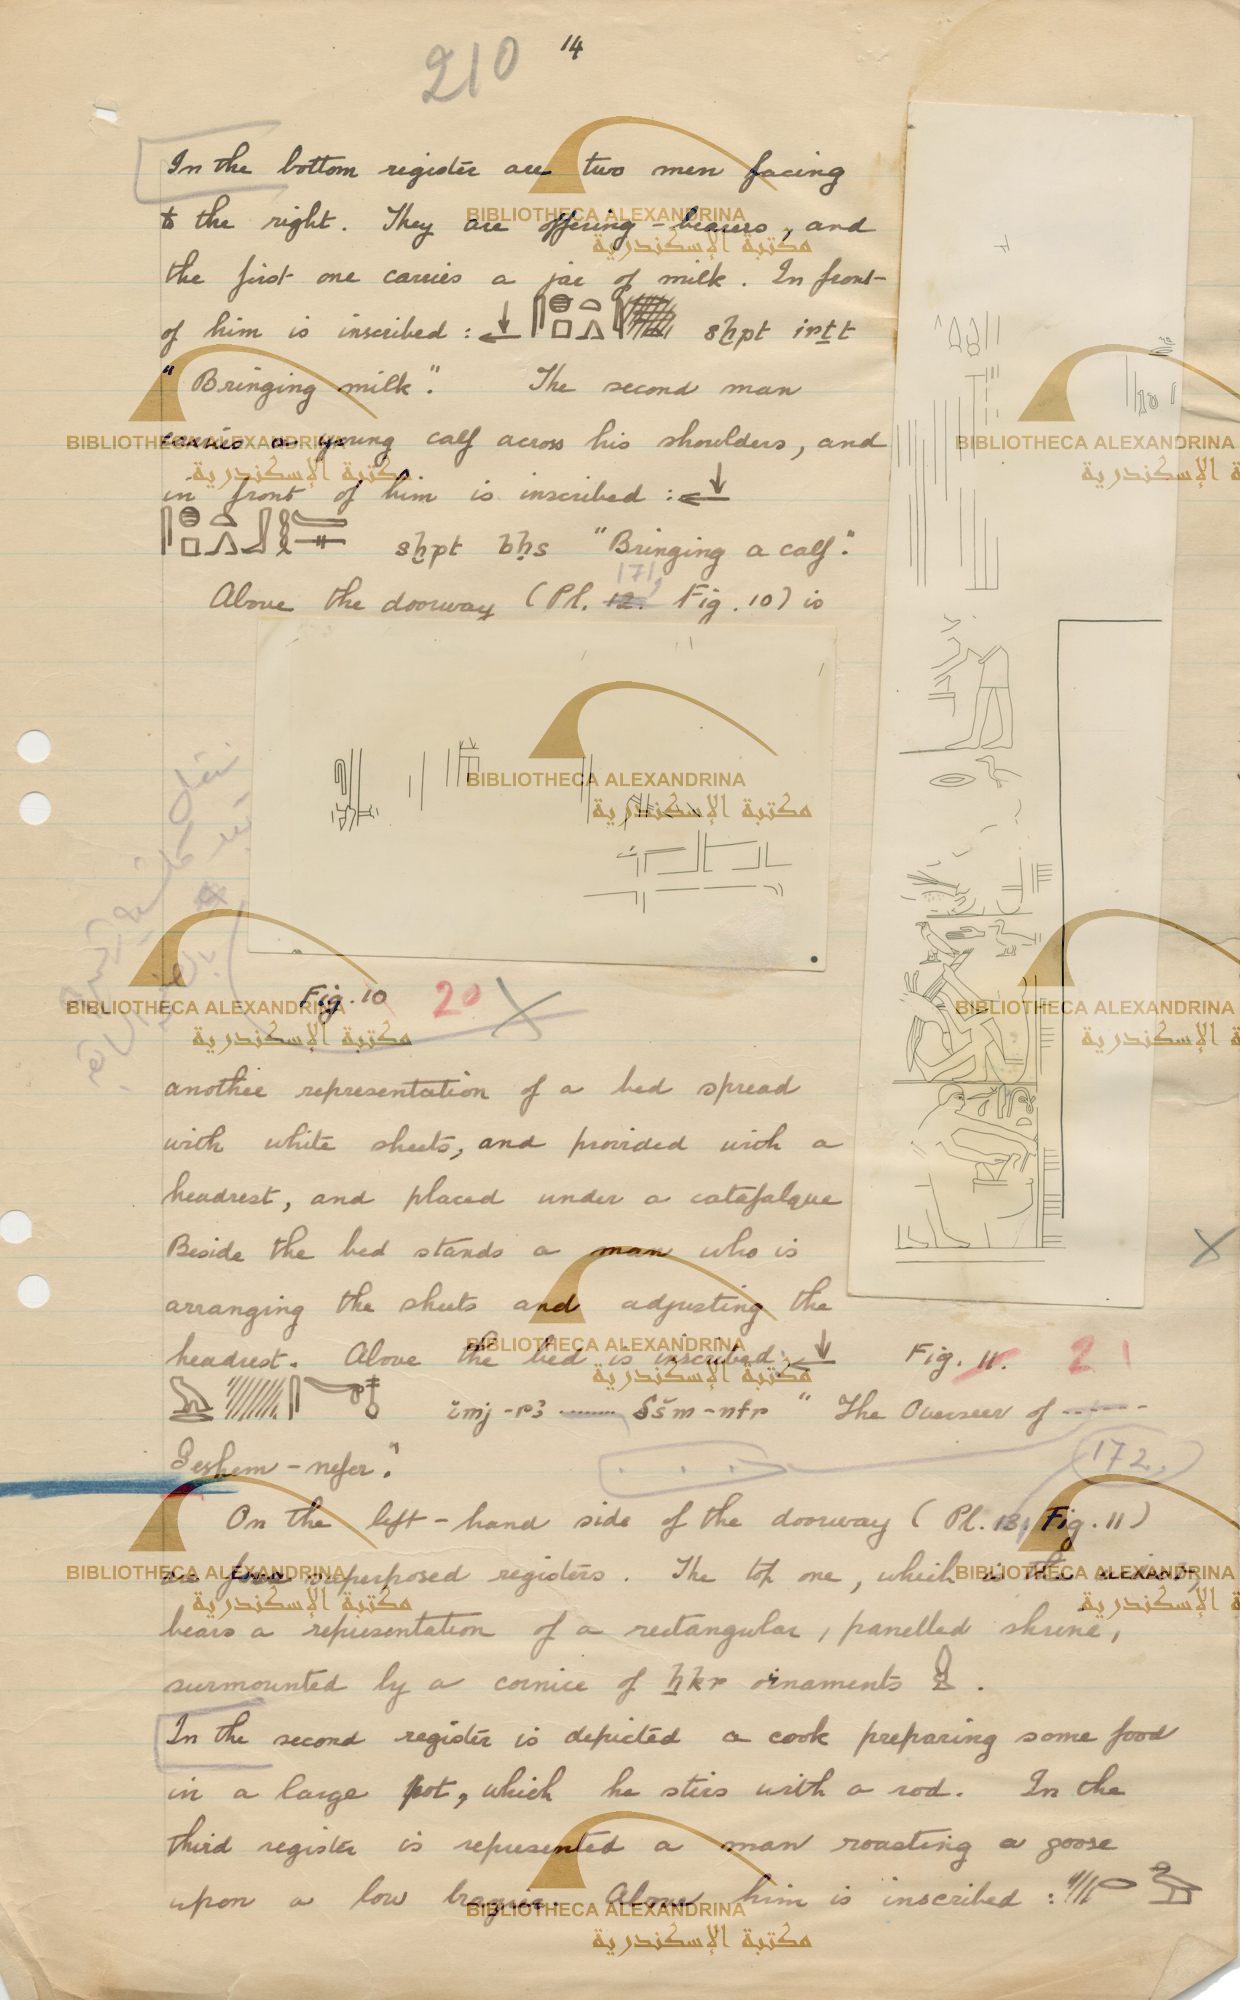 210
14
In the bottom register are two men facing
to the right. They are offering-bearers, and
the first one carries a jar of milk. In front
of him is inscribed: sẖpt irṯt
"Bringing milk". The second man
carries a young calf across his shoulders, and
in front of him is inscribed:
sẖpt bḥs "Bringing a calf".
171,
Above the doorway (Pl. 12. Fig. 10) is
Fig. 10 20
another representation of a bed spread
with white sheets, and provided with a
headrest, and placed under a catafalque
Beside the bed stands a man who is
arranging the sheets and adjusting the
headrest. Above the bed is inscribed:
Fig. 11. 21
imj-r3 ........ Sšm-nfr "The Overseer of ------
Seshem-nefer".
172,
On the left-hand side of the doorway (Pl. 13, Fig. 11)
are four superposed registers. The top one, which is the
bears a representation of a rectangular, panelled shrine,
surmounted by a cornice of ẖkr ornaments.
In the second register is depicted a cook preparing some food
in a large pot, which he stirs with a rod. In the
third register is represented a man roasting a goose
upon a low brazier. Above him is inscribed:
BIBLIOTHECA ALEXANDRINA
مكتبة الإسكندرية